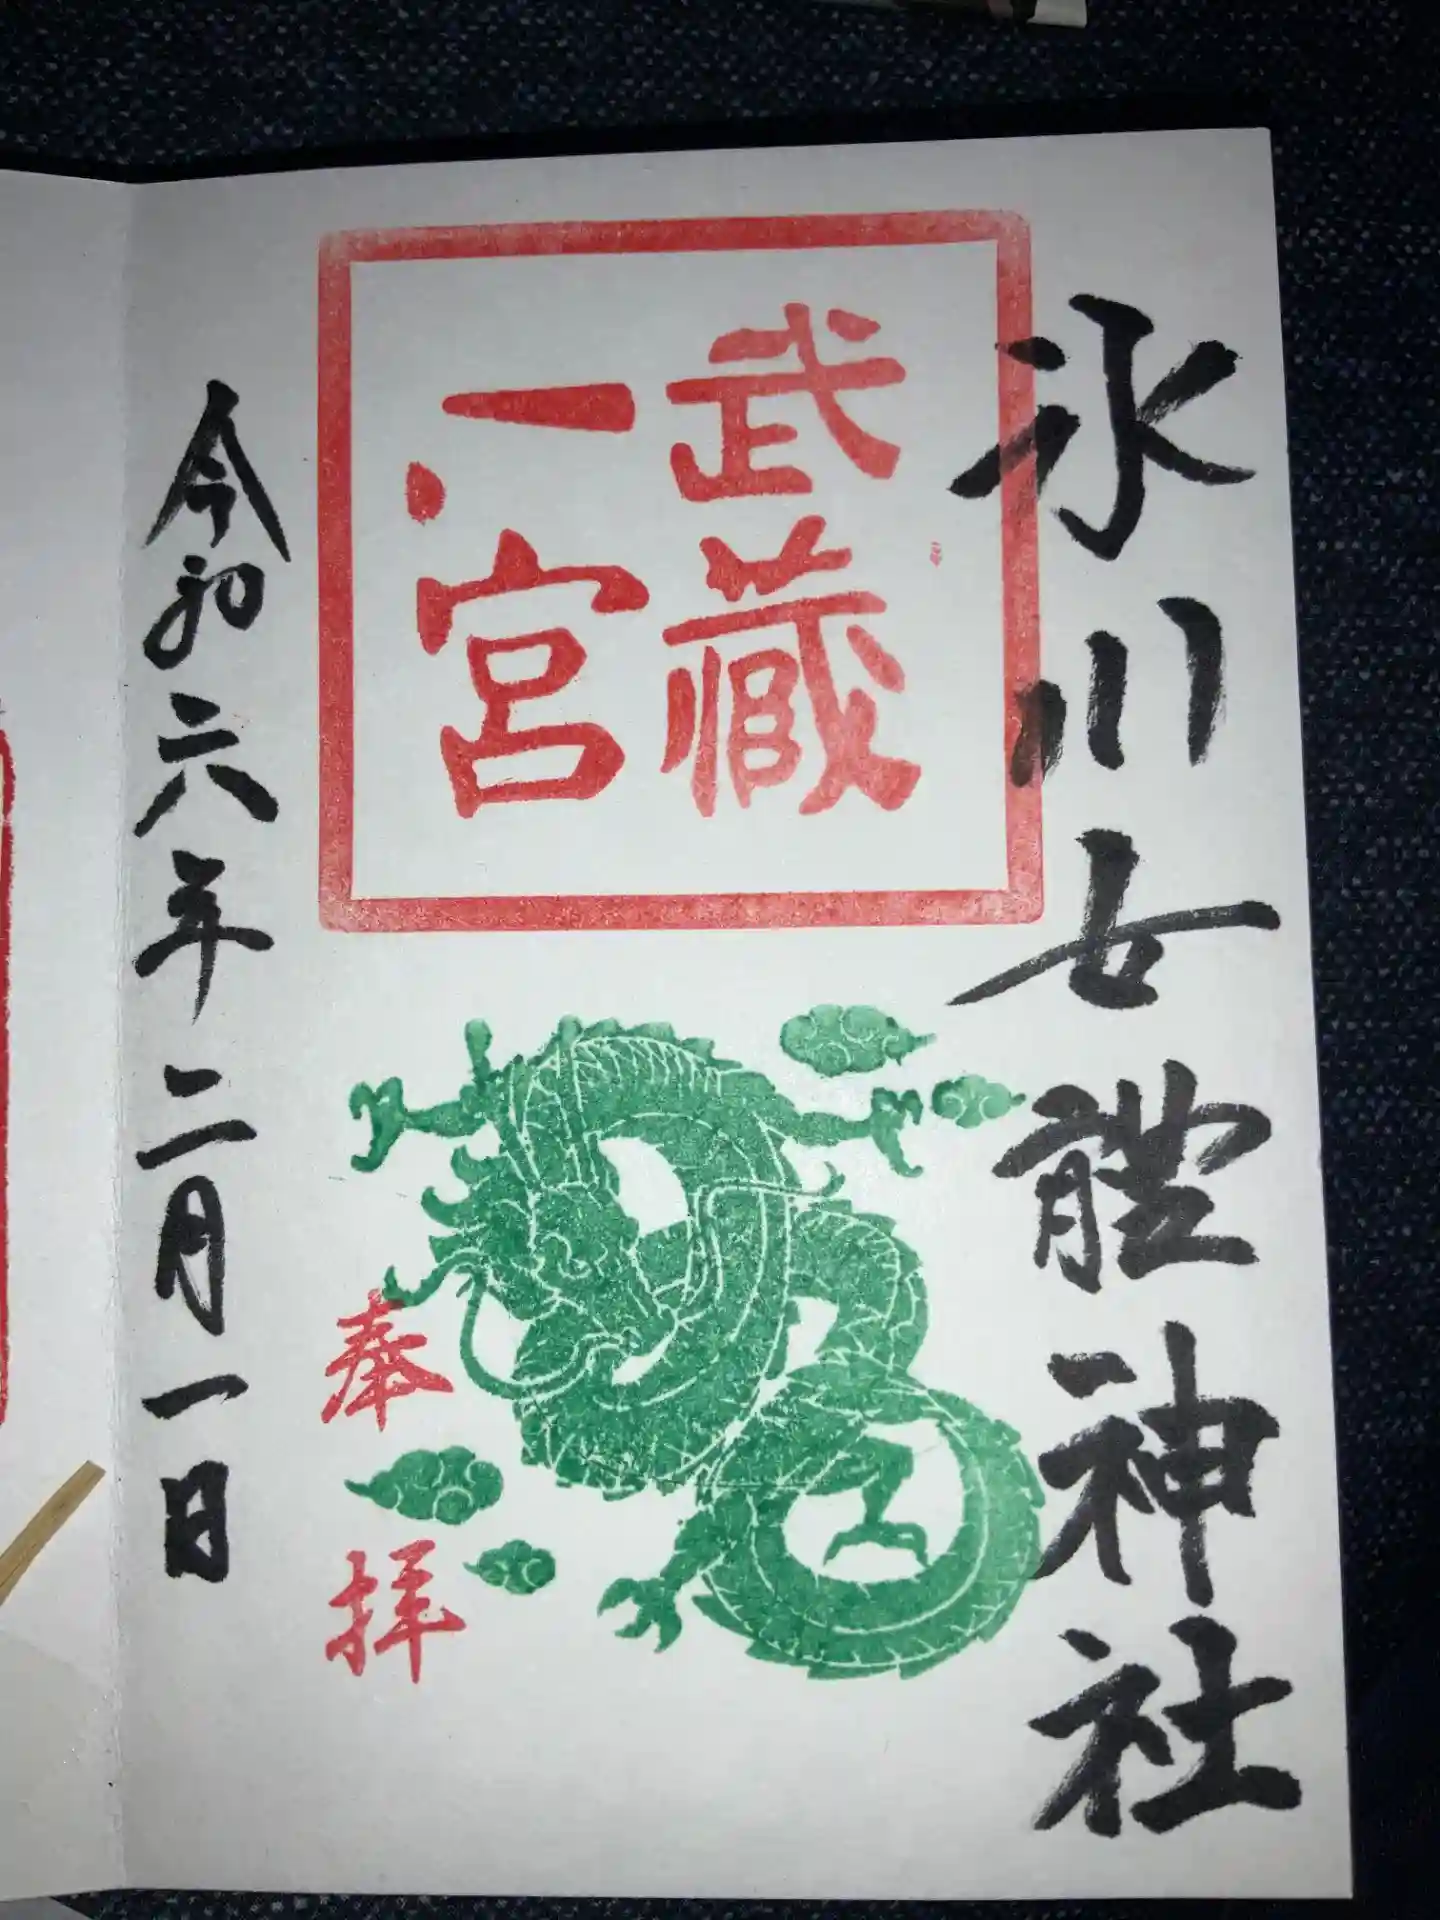 氷川女體神社
武藏
一宮
奉拝
令和六年二月一日